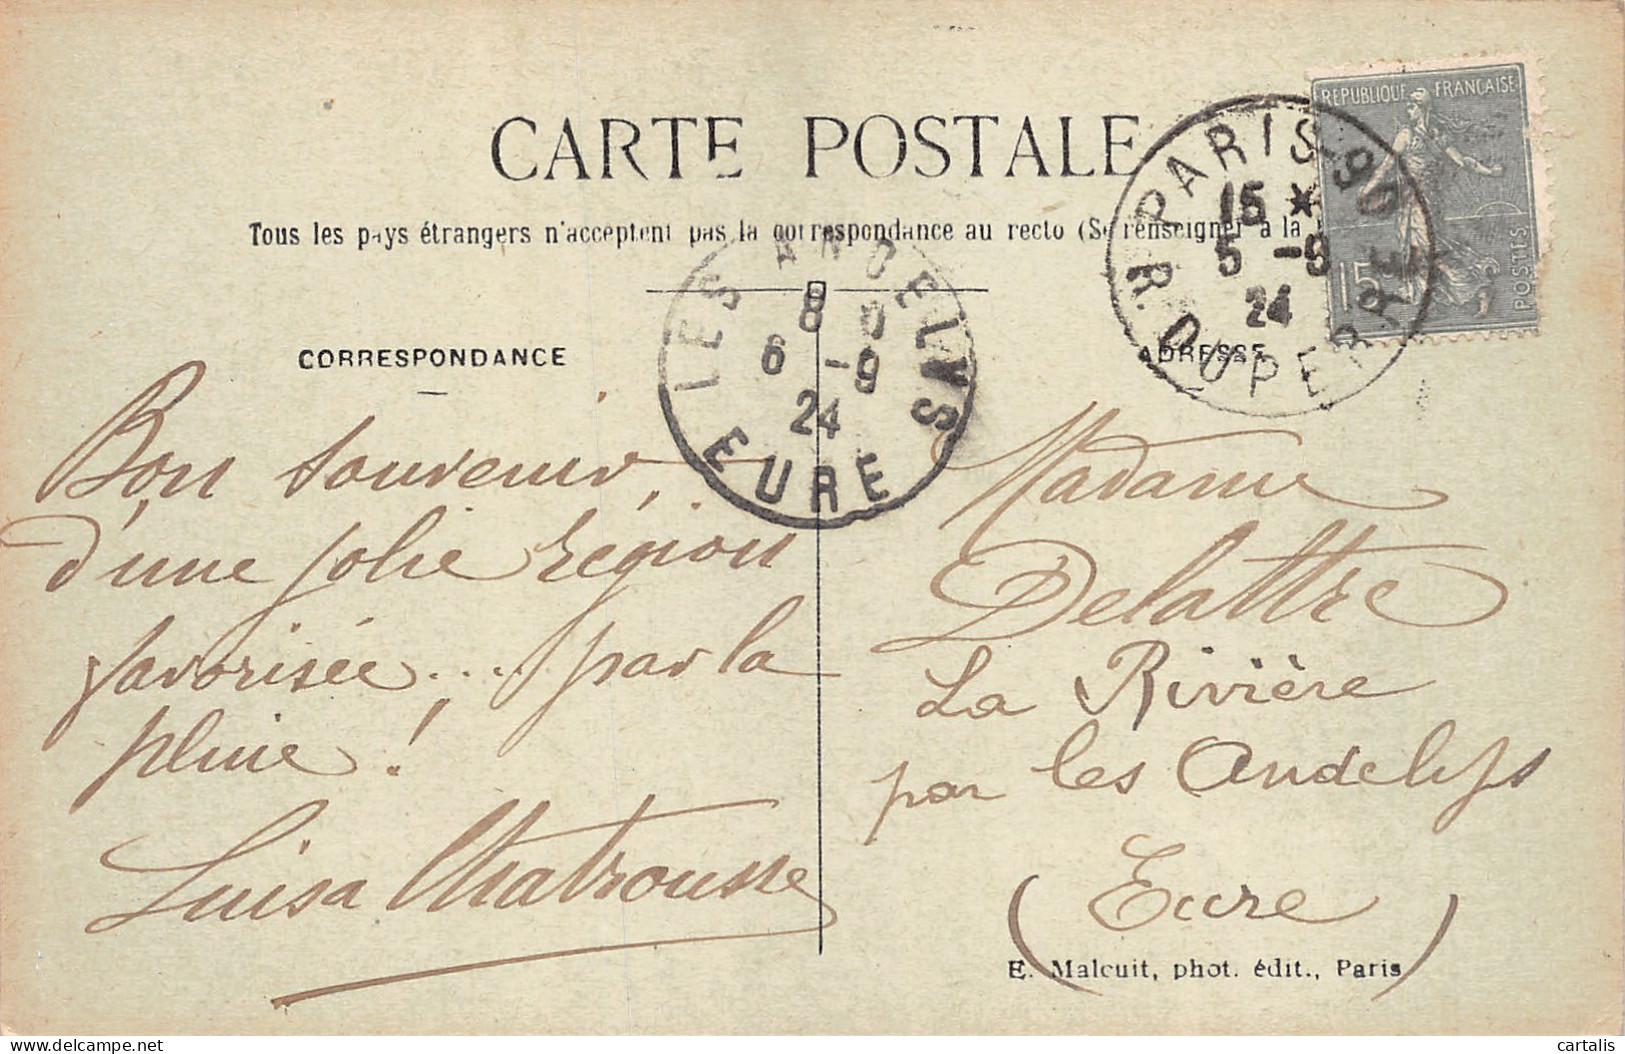 CARTE POSTALE
Tous les pays étrangers n'acceptent pas la correspondance au recto (Se renseigner à la
REPUBLIQUE FRANÇAISE
15
POSTES
PARIS-90
15 *
5 -9
24
R. DUPERRE
LES ANDELYS
8
6 -9
24
EURE
CORRESPONDANCE
ADRESSE
Bon souvenir,
d'une jolie région
favorisée... par la
pluie !
Luisa Chatrousse
Madame
Delattre
La Rivière
par les Andelys
(Eure)
E. Malcuit, phot. édit., Paris
delcampe.net
cartalis